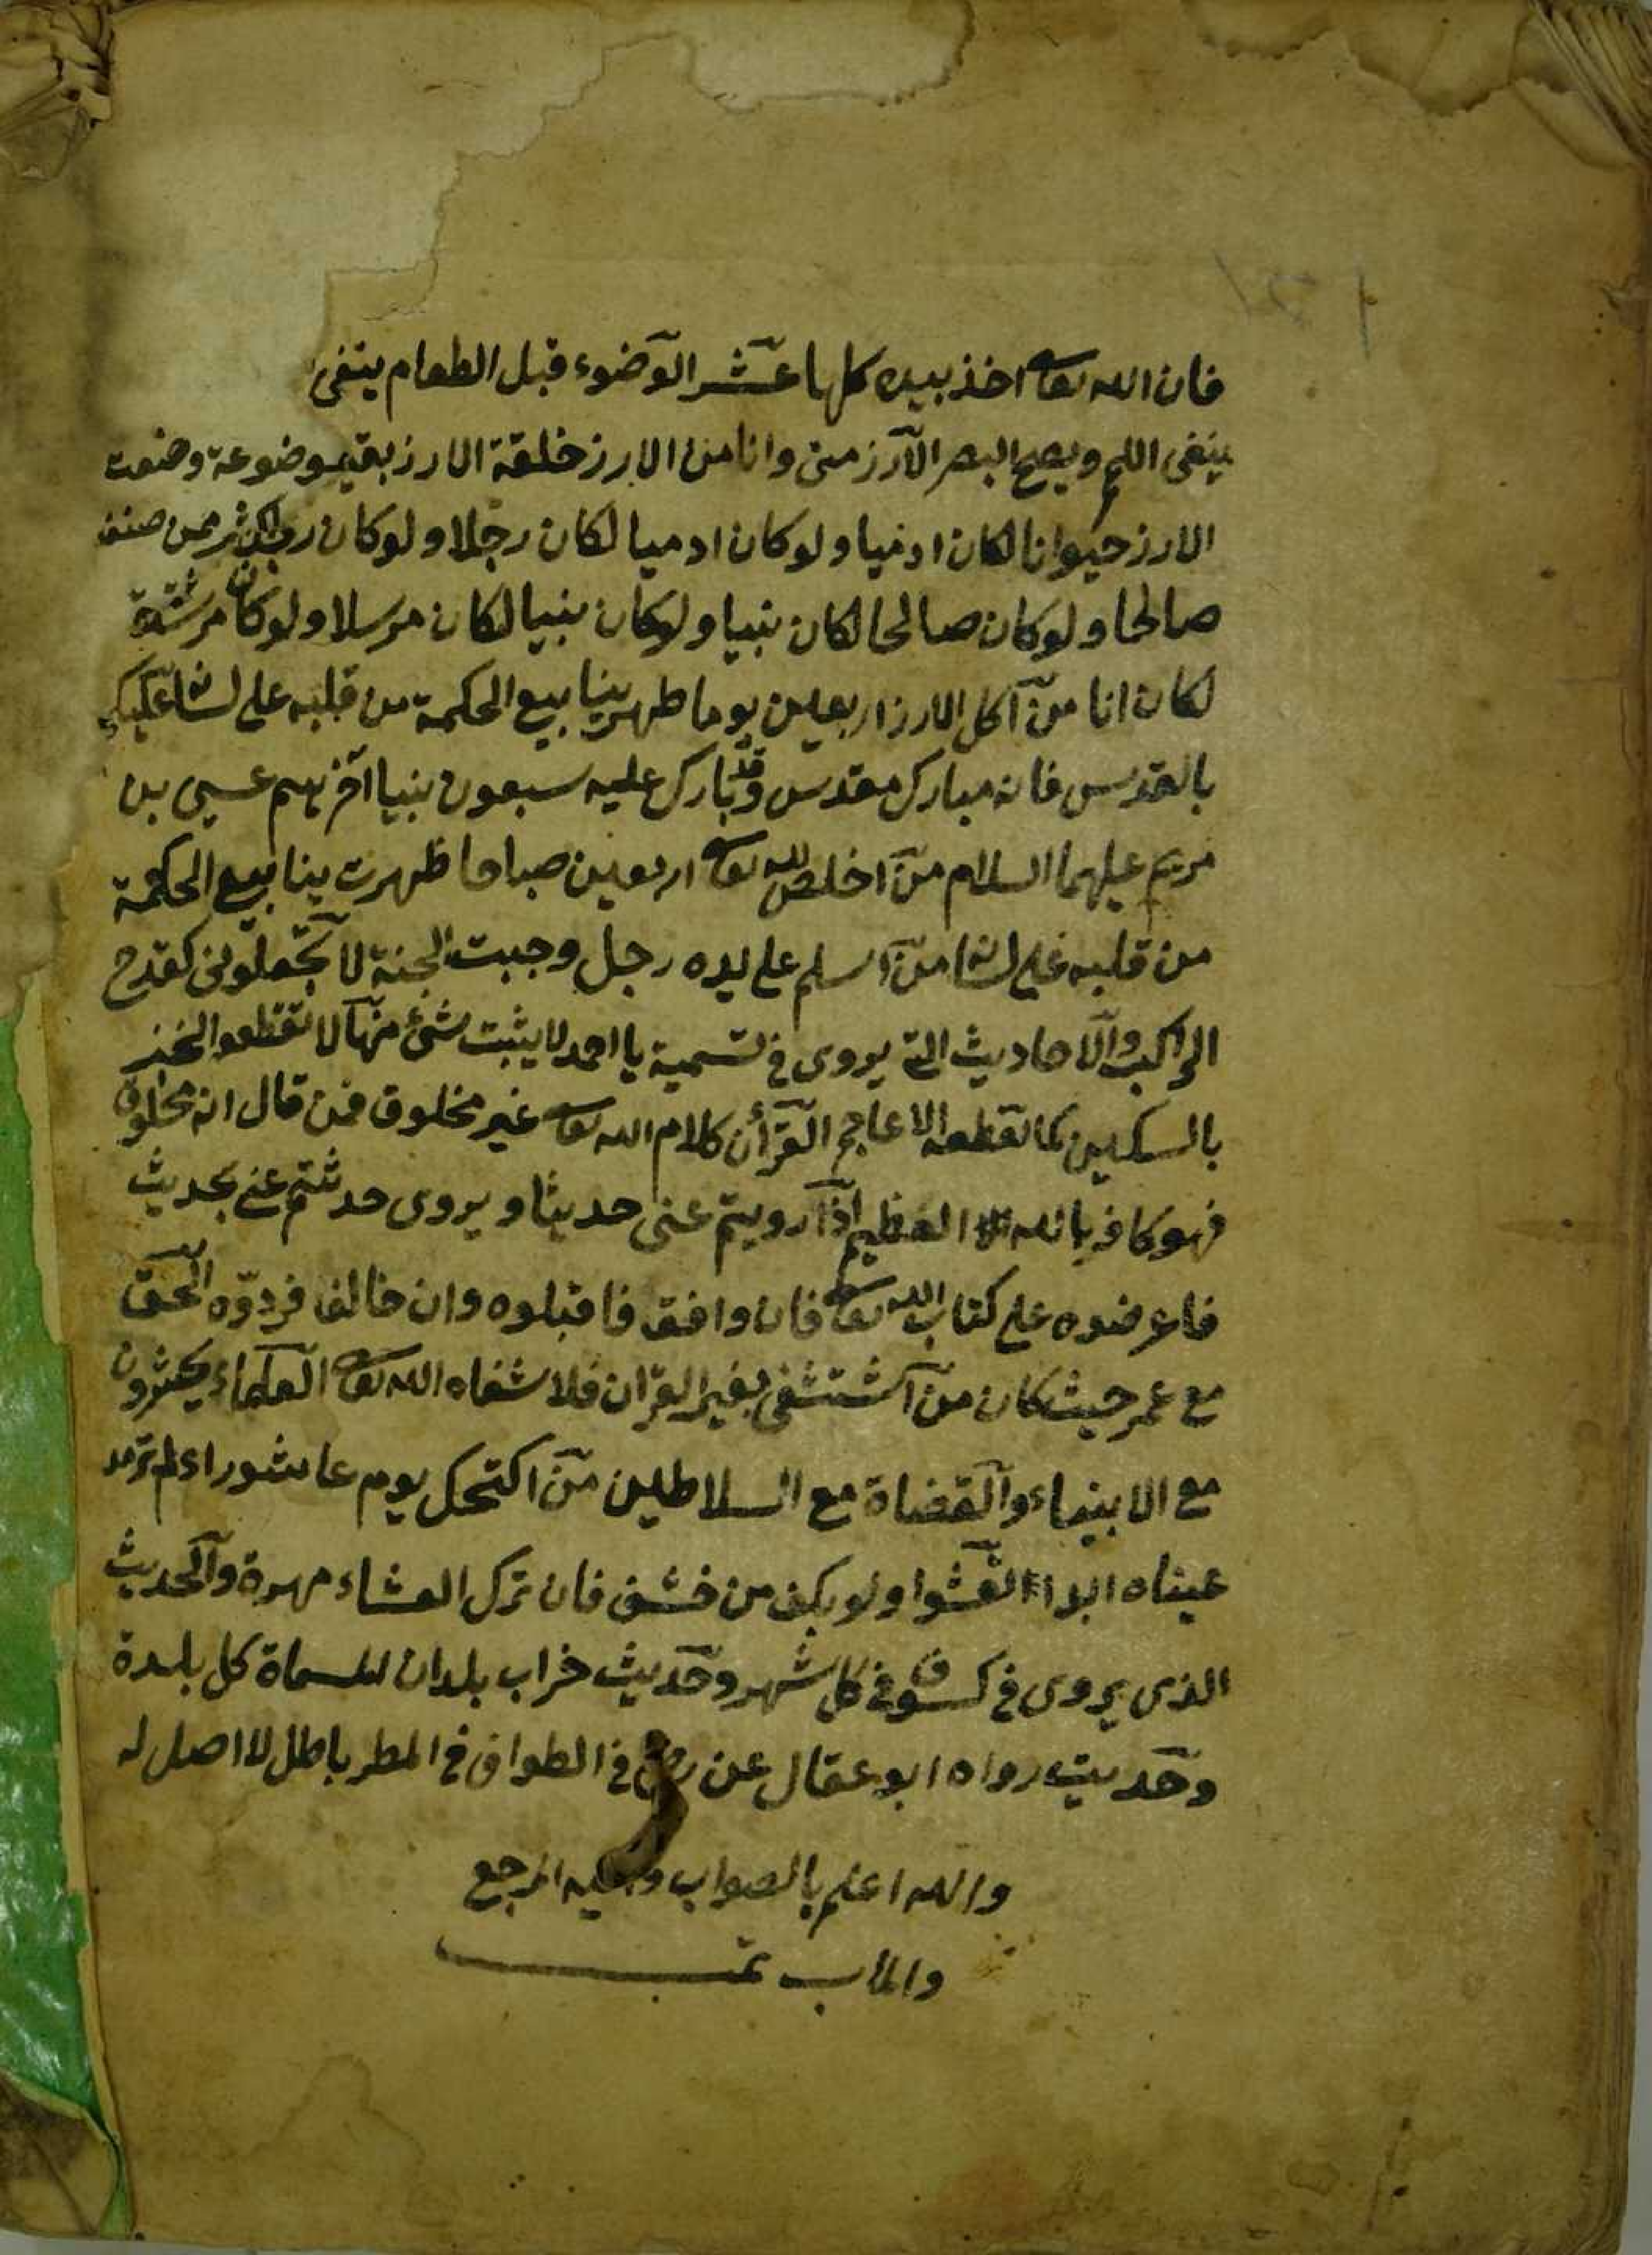 فان الله تعا اخذ بيده كلما عثر الوضوء قبل الطعام ينفى
ينفى اللمم ويصح البصر الارز منى وانا من الارز خلقة الارز بقية موضوعة وضعت
الارز حيوانا لكان ادميا ولو كان ادميا لكان رجلا ولو كان رجلا
صالحا ولو كان صالحا لكان نبيا ولو كان نبيا لكان مرسلا ولو كان
لكان انا من اكل الارز اربعين يوما ظهر ينابيع الحكمة من قلبه على لسانه عليكم
بالعدس فانه مبارك مقدس وقد بارك عليه سبعون نبيا اخرهم عيسى بن
مريم عليهما السلام من اخلص لله تعا اربعين صباحا ظهرت ينابيع الحكمة
من قلبه على لسانه من اسلم على يده رجل وجبت الجنة لا تجعلونى كقدح
الراكب والاحاديث التى يروى فى تسمية يا احمد لا يثبت شئ منها لا تقطعوا الخبز
بالسكين كما تقطعه الاعاجم القرأن كلام الله تعا غير مخلوق فمن قال انه مخلوق
فهو كافر بالله العظيم اذا رويتم عنى حديثا ويروى حدثتم عنى بحديث
فاعرضوه على كتاب الله تعا فان وافق فاقبلوه وان خالف فردوه الحق
مع عمر حيث كان من استشفى بغير القرآن فلا شفاه الله تعا العلماء يحشرون
مع الانبياء والقضاة مع السلاطين من اكتحل يوم عاشوراء لم ترمد
عيناه ابدا تعشوا ولو بكف من حشف فان ترك العشاء مهرة والحديث
الذى يروى فى كسوف فى كل شهر وحديث خراب بلدان المسماة كل بلدة
وحديث رواه ابو عقال عن فى الطواف فى المطر باطل لا اصل له
والله اعلم بالصواب واليه المرجع
والمأب تمت